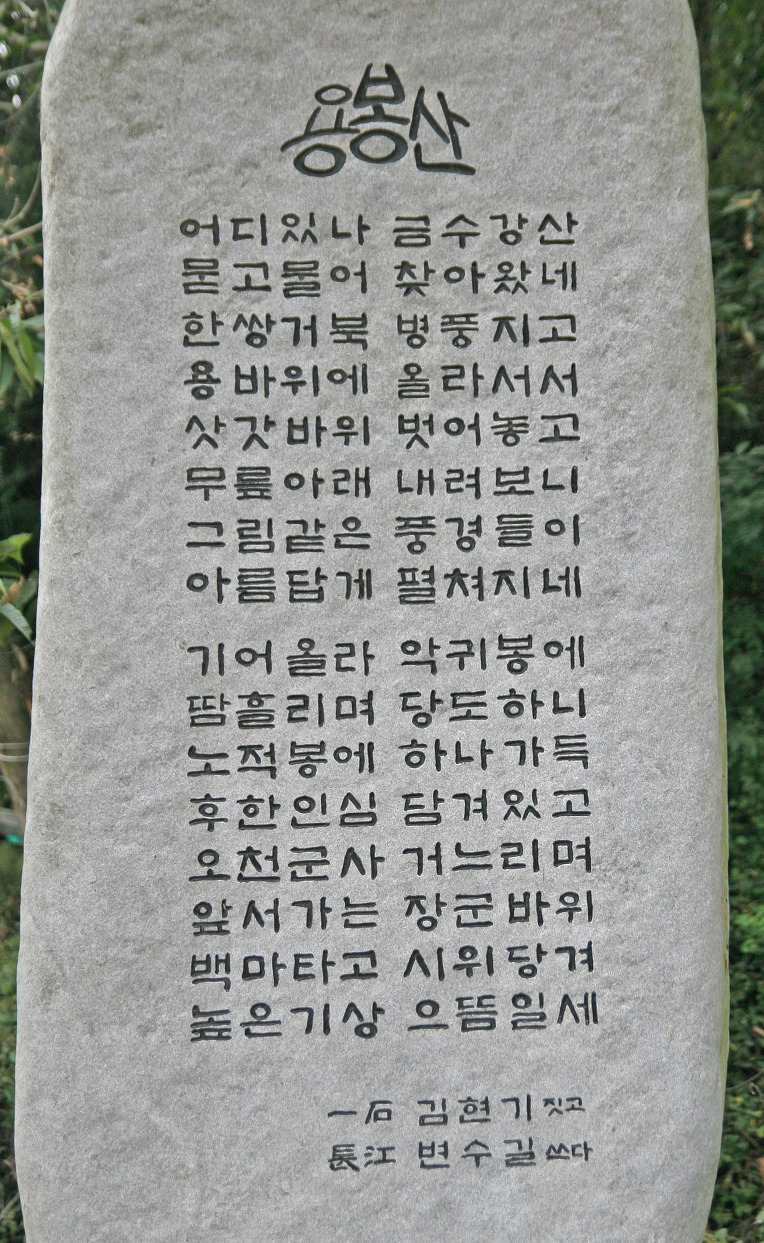 용봉산
어디있나 금수강산
묻고물어 찾아왔네
한쌍거북 병풍지고
용바위에 올라서서
삿갓바위 벗어놓고
무릎아래 내려보니
그림같은 풍경들이
아름답게 펼쳐지네
기어올라 악귀봉에
땀흘리며 당도하니
노적봉에 하나가득
후한인심 담겨있고
오천군사 거느리며
앞서가는 장군바위
백마타고 시위당겨
높은기상 으뜸일세
一石 김현기 짓고
長江 변수길 쓰다